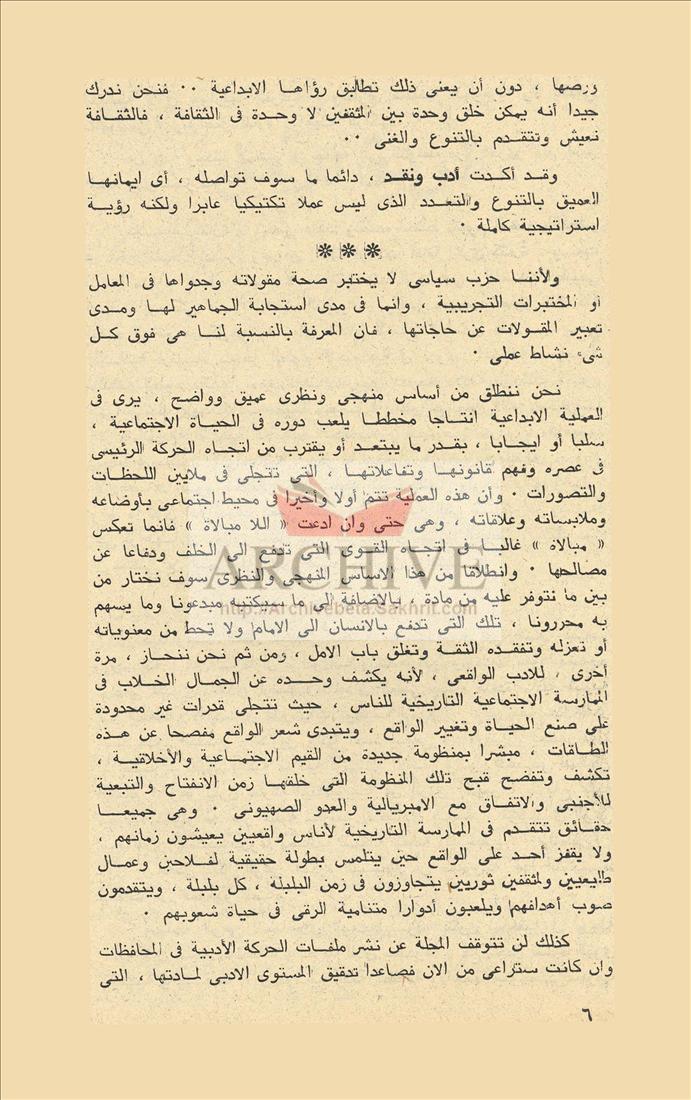 ورصها ، دون أن يعنى ذلك تطابق رؤاها الابداعية ٠٠ فنحن ندرك
جيدا أنه يمكن خلق وحدة بين المثقفين لا وحدة فى الثقافة ، فالثقافة
تعيش وتتقدم بالتنوع والغنى ٠٠
وقد أكدت أدب ونقد ، دائما ما سوف تواصله ، أى ايمانها
العميق بالتنوع والتعدد الذى ليس عملا تكتيكيا عابرا ولكنه رؤية
استراتيجية كاملة ٠
❋ ❋ ❋
ولأننا حزب سياسى لا يختبر صحة مقولاته وجدواها فى المعامل
أو المختبرات التجريبية ، وانما فى مدى استجابة الجماهير لها ومدى
تعبير المقولات عن حاجاتها ، فان المعرفة بالنسبة لنا هى فوق كل
شىء نشاط عملى ٠
نحن ننطلق من أساس منهجى ونظرى عميق وواضح ، يرى فى
العملية الابداعية انتاجا مخططا يلعب دوره فى الحياة الاجتماعية ،
سلبا أو ايجابا ، بقدر ما يبتعد أو يقترب من اتجاه الحركة الرئيسى
فى عصره وفهم قانونها وتفاعلاتها ، التى تتجلى فى ملايين اللحظات
والتصورات ٠ وأن هذه العملية تتم أولا وأخيرا فى محيط اجتماعى بأوضاعه
وملابساته وعلاقاته ، وهى حتى وان ادعت « اللا مبالاة » فانما تعكس
« مبالاة » غالبا فى اتجاه القوى التى تدفع الى الخلف ودفاعا عن
مصالحها ٠ وانطلاقا من هذا الاساس المنهجى والنظرى سوف نختار من
بين ما نتوفر عليه من مادة ، بالاضافة الى ما سيكتبه مبدعونا وما يسهم
به محررونا ، تلك التى تدفع بالانسان الى الامام ولا تحط من معنوياته
أو تعزله وتفقده الثقة وتغلق باب الامل ، ومن ثم نحن ننحاز ، مرة
أخرى ، للادب الواقعى ، لأنه يكشف وحده عن الجمال الخلاب فى
الممارسة الاجتماعية التاريخية للناس ، حيث تتجلى قدرات غير محدودة
على صنع الحياة وتغيير الواقع ، ويتبدى شعر الواقع مفصحا عن هذه
الطاقات ، مبشرا بمنظومة جديدة من القيم الاجتماعية والأخلاقية ،
تكشف وتفضح قبح تلك المنظومة التى خلقها زمن الانفتاح والتبعية
للأجنبى والاتفاق مع الامبريالية والعدو الصهيونى ٠ وهى جميعا
حقائق تتقدم فى الممارسة التاريخية لأناس واقعيين يعيشون زمانهم ،
ولا يقفز أحد على الواقع حين يتلمس بطولة حقيقية لفلاحين وعمال
طليعيين ولمثقفين ثوريين يتجاوزون فى زمن البلبلة ، كل بلبلة ، ويتقدمون
صوب أهدافهم ويلعبون أدوارا متنامية الرقى فى حياة شعوبهم ٠
كذلك لن تتوقف المجلة عن نشر ملفات الحركة الأدبية فى المحافظات
وان كانت ستراعى من الان فصاعدا تدقيق المستوى الادبى لمادتها ، التى
٦
ARCHIVE
http://Archivebeta.Sakhrit.com